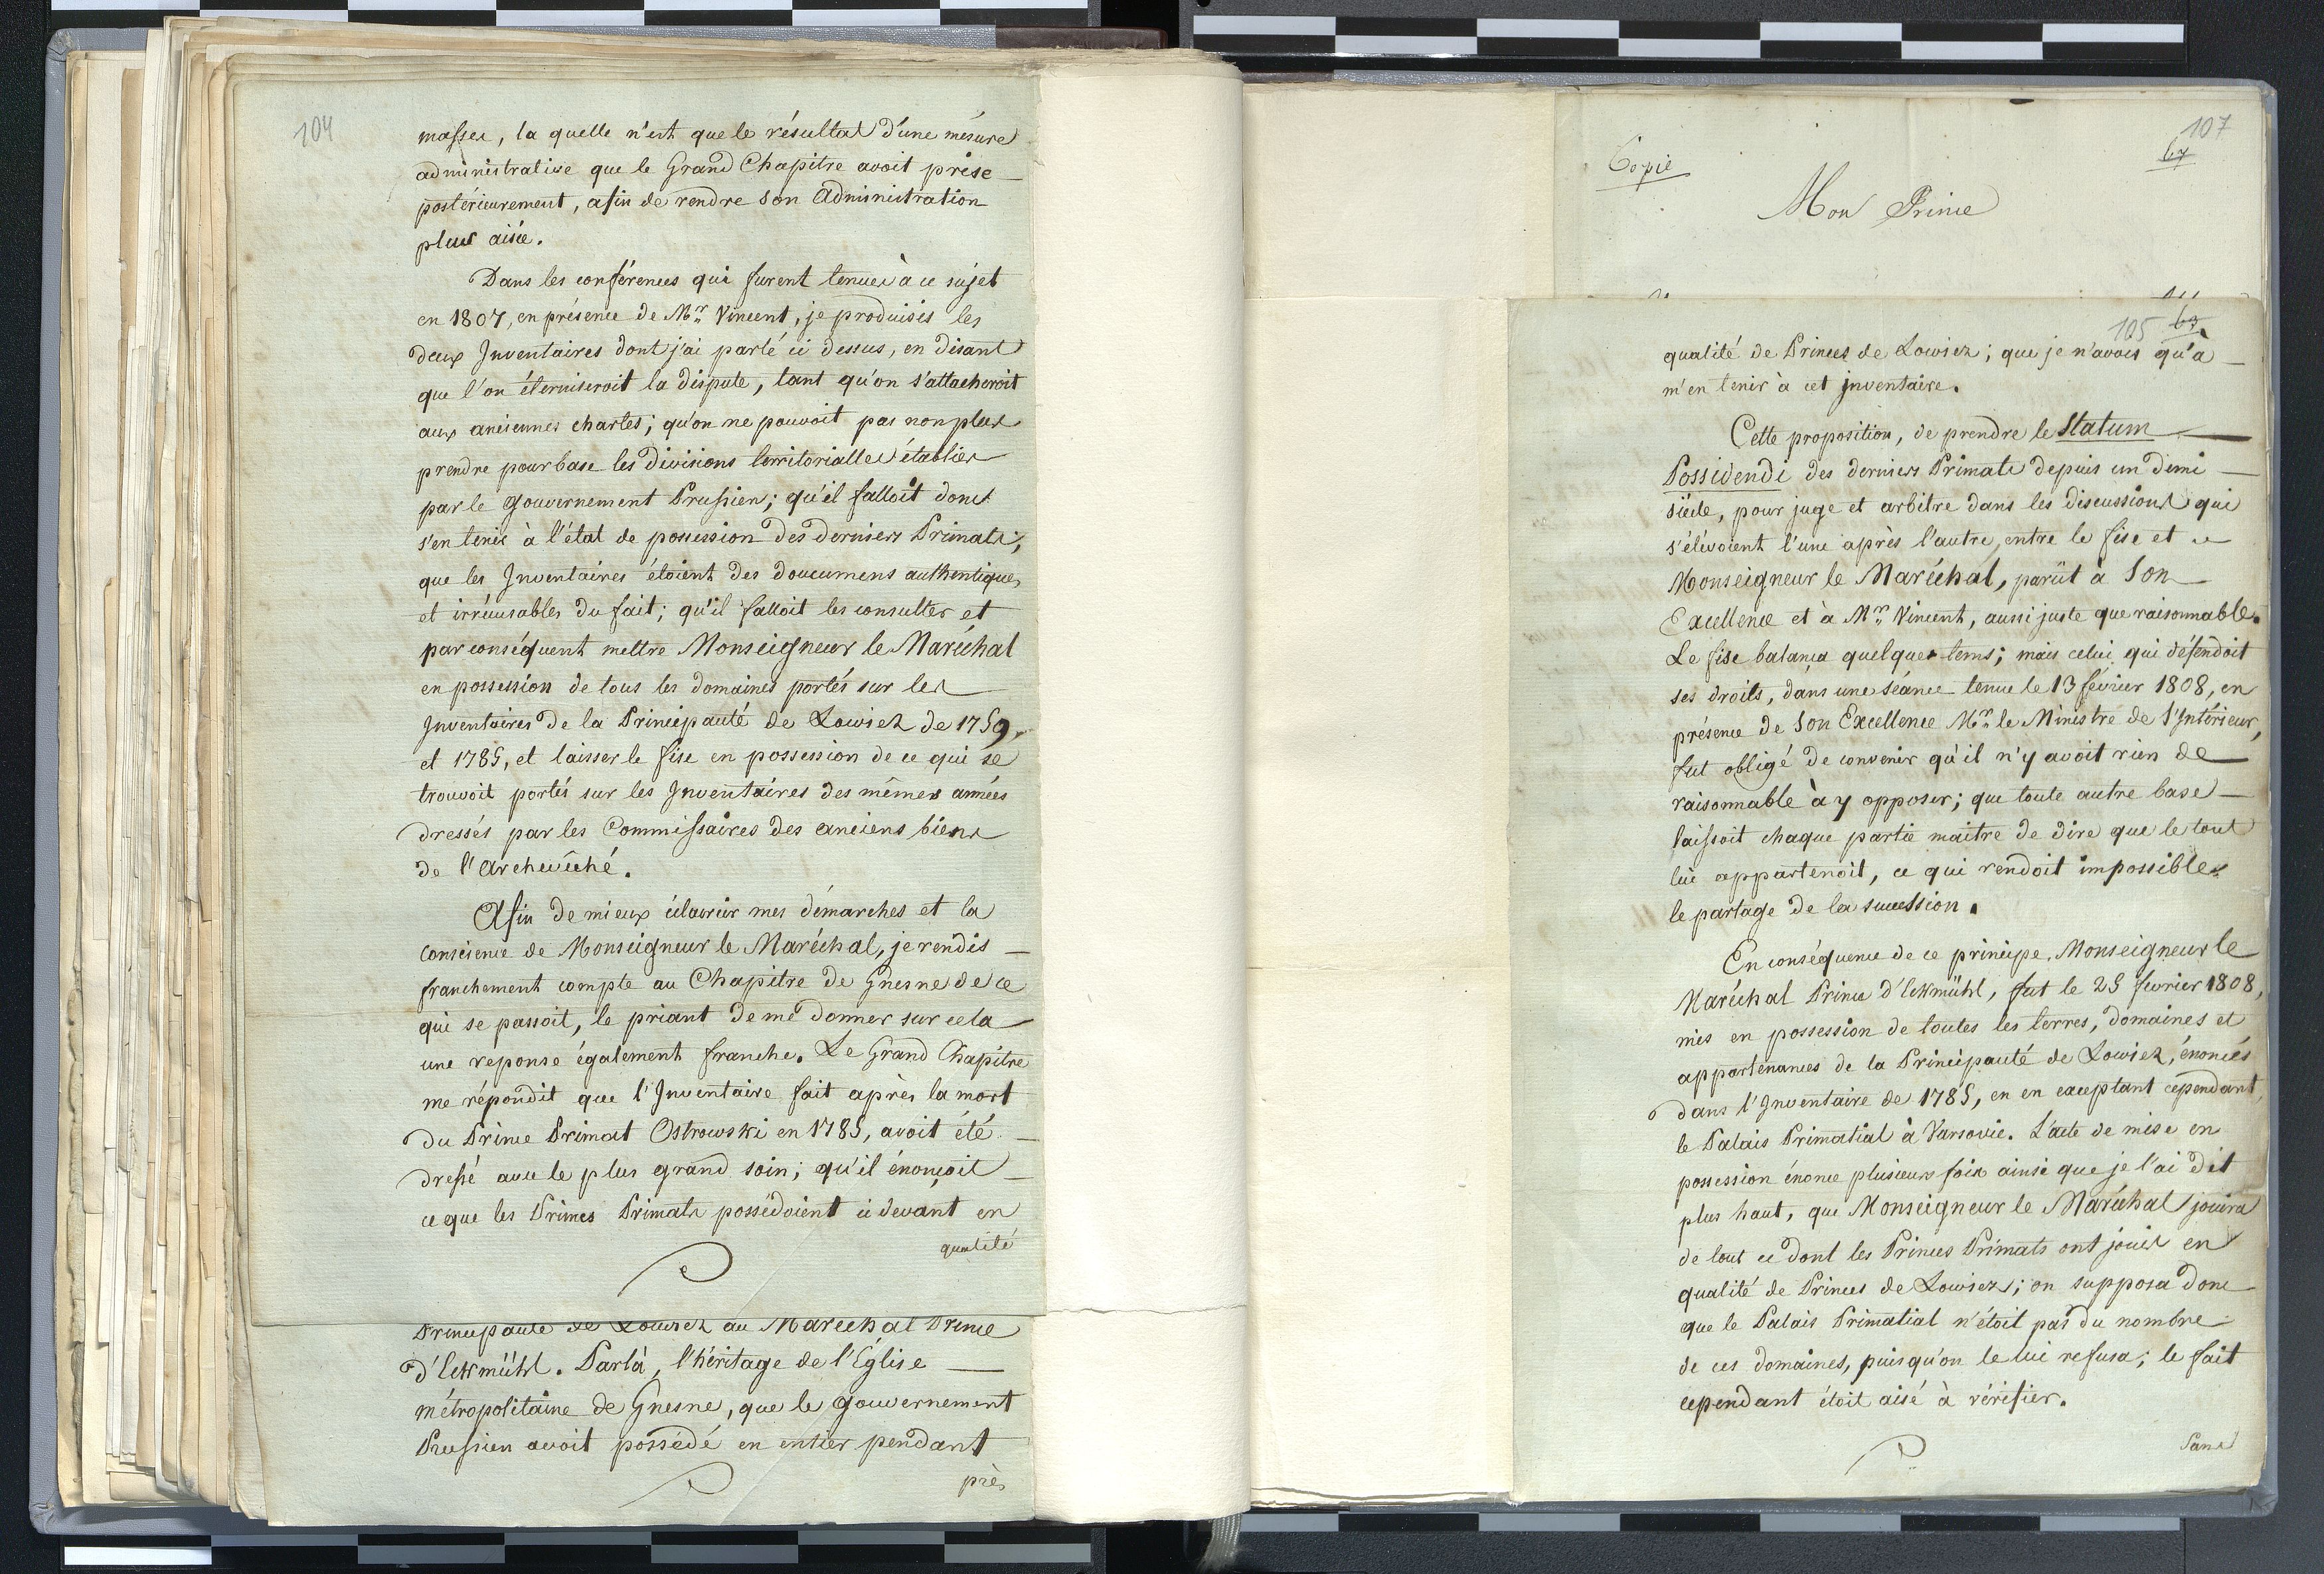 104
masses, la quelle n'est que le résultat d'une mésure
administrative que le Grand Chapitre avoit prise
postérieurement, afin de rendre son Administration
plus aisée.
Dans les conférences qui furent tenues à ce sujet
en 1807, en présence de Mr. Vincent, je produisis les
deux Inventaires dont j'ai parlé ci dessus, en disant
que l'on éterniseroit la dispute, tant qu'on s'attacheroit
aux anciennes chartes; qu'on ne pouvoit pas non plus
prendre pour base les divisions territorialles établies
par le Gouvernement Prussien; qu'il falloit donc
s'en tenir à l'état de possession des derniers Primats;
que les Inventaires étoient des doucumens authentiques
et irrécusables du fait; qu'il falloit les consulter et
par conséquent mettre Monseigneur le Maréchal
en possession de tous les domaines portés sur les
Inventaires de la Principauté de Lowicz de 1759,
et 1785, et laisser le fisc en possession de ce qui se
trouvoit portés sur les Inventaires des mêmes années
dressés par les Commissaires des anciens biens
de l'Archevêché.
Afin de mieux éclaircir mes démarches et la
conscience de Monseigneur le Maréchal, je rendis
franchement compte au Chapitre de Gnesne de ce
qui se passoit, le priant de me donner sur cela
une reponse également franche. Le Grand Chapitre
me répondit que l'Inventaire fait après la mort
du Prince Primat Ostrowski en 1785, avoit été
dressé avec le plus grand soin; qu'il énonçoit
ce que les Princes Primats possédoient ci devant en
qualité
Principauté de Lowicz au Maréchal Prince
d'Eckmühl. Parlà, l'héritage de l'Église
métropolitaine de Gnesne, que le Gouvernement
Prussien avoit possédé en entier pendant
près
107
67
Copie
Mon Prince
105 63
qualité de Princes de Lowicz; que je n'avois qu'à
m'en tenir à cet Inventaire.
Cette proposition, de prendre le Statum
Possidendi des derniers Primats depuis un demi
siècle, pour juge et arbitre dans les discussions qui
s'élévoient l'une après l'autre, entre le fisc et
Monseigneur le Maréchal, parût à Son
Excellence et à Mr. Vincent, aussi juste que raisonnable.
Le fisc balança quelques tems; mais celui qui défendoit
ses droits, dans une séance tenue le 13 février 1808, en
présence de Son Excellence Mr. le Ministre de l'Intérieur,
fut obligé de convenir qu'il n'y avoit rien de
raisonnable à y opposer; que toute autre base
laissoit chaque partie maitre de dire que le tout
lui appartenoit, ce qui rendoit impossible
le partage de la succession.
En conséquence de ce principe, Monseigneur le
Maréchal Prince d'Eckmühl, fut le 25 fevrier 1808,
mis en possession de toutes les terres, domaines et
appartenances de la Principauté de Lowicz, énoncés
dans l'Inventaire de 1785, en en exceptant cependant,
le Palais Primatial à Varsovie. L'acte de mise en
possession énonce plusieurs fois ainsi que je l'ai dit
plus haut, que Monseigneur le Maréchal jouira
de tout ce dont les Princes Primats ont jouis en
qualité de Princes de Lowicz; on supposa donc
que le Palais Primatial n'étoit pas du nombre
de ces domaines, puisqu'on le lui refusa; le fait
cependant étoit aisé à vérifier.
Sans